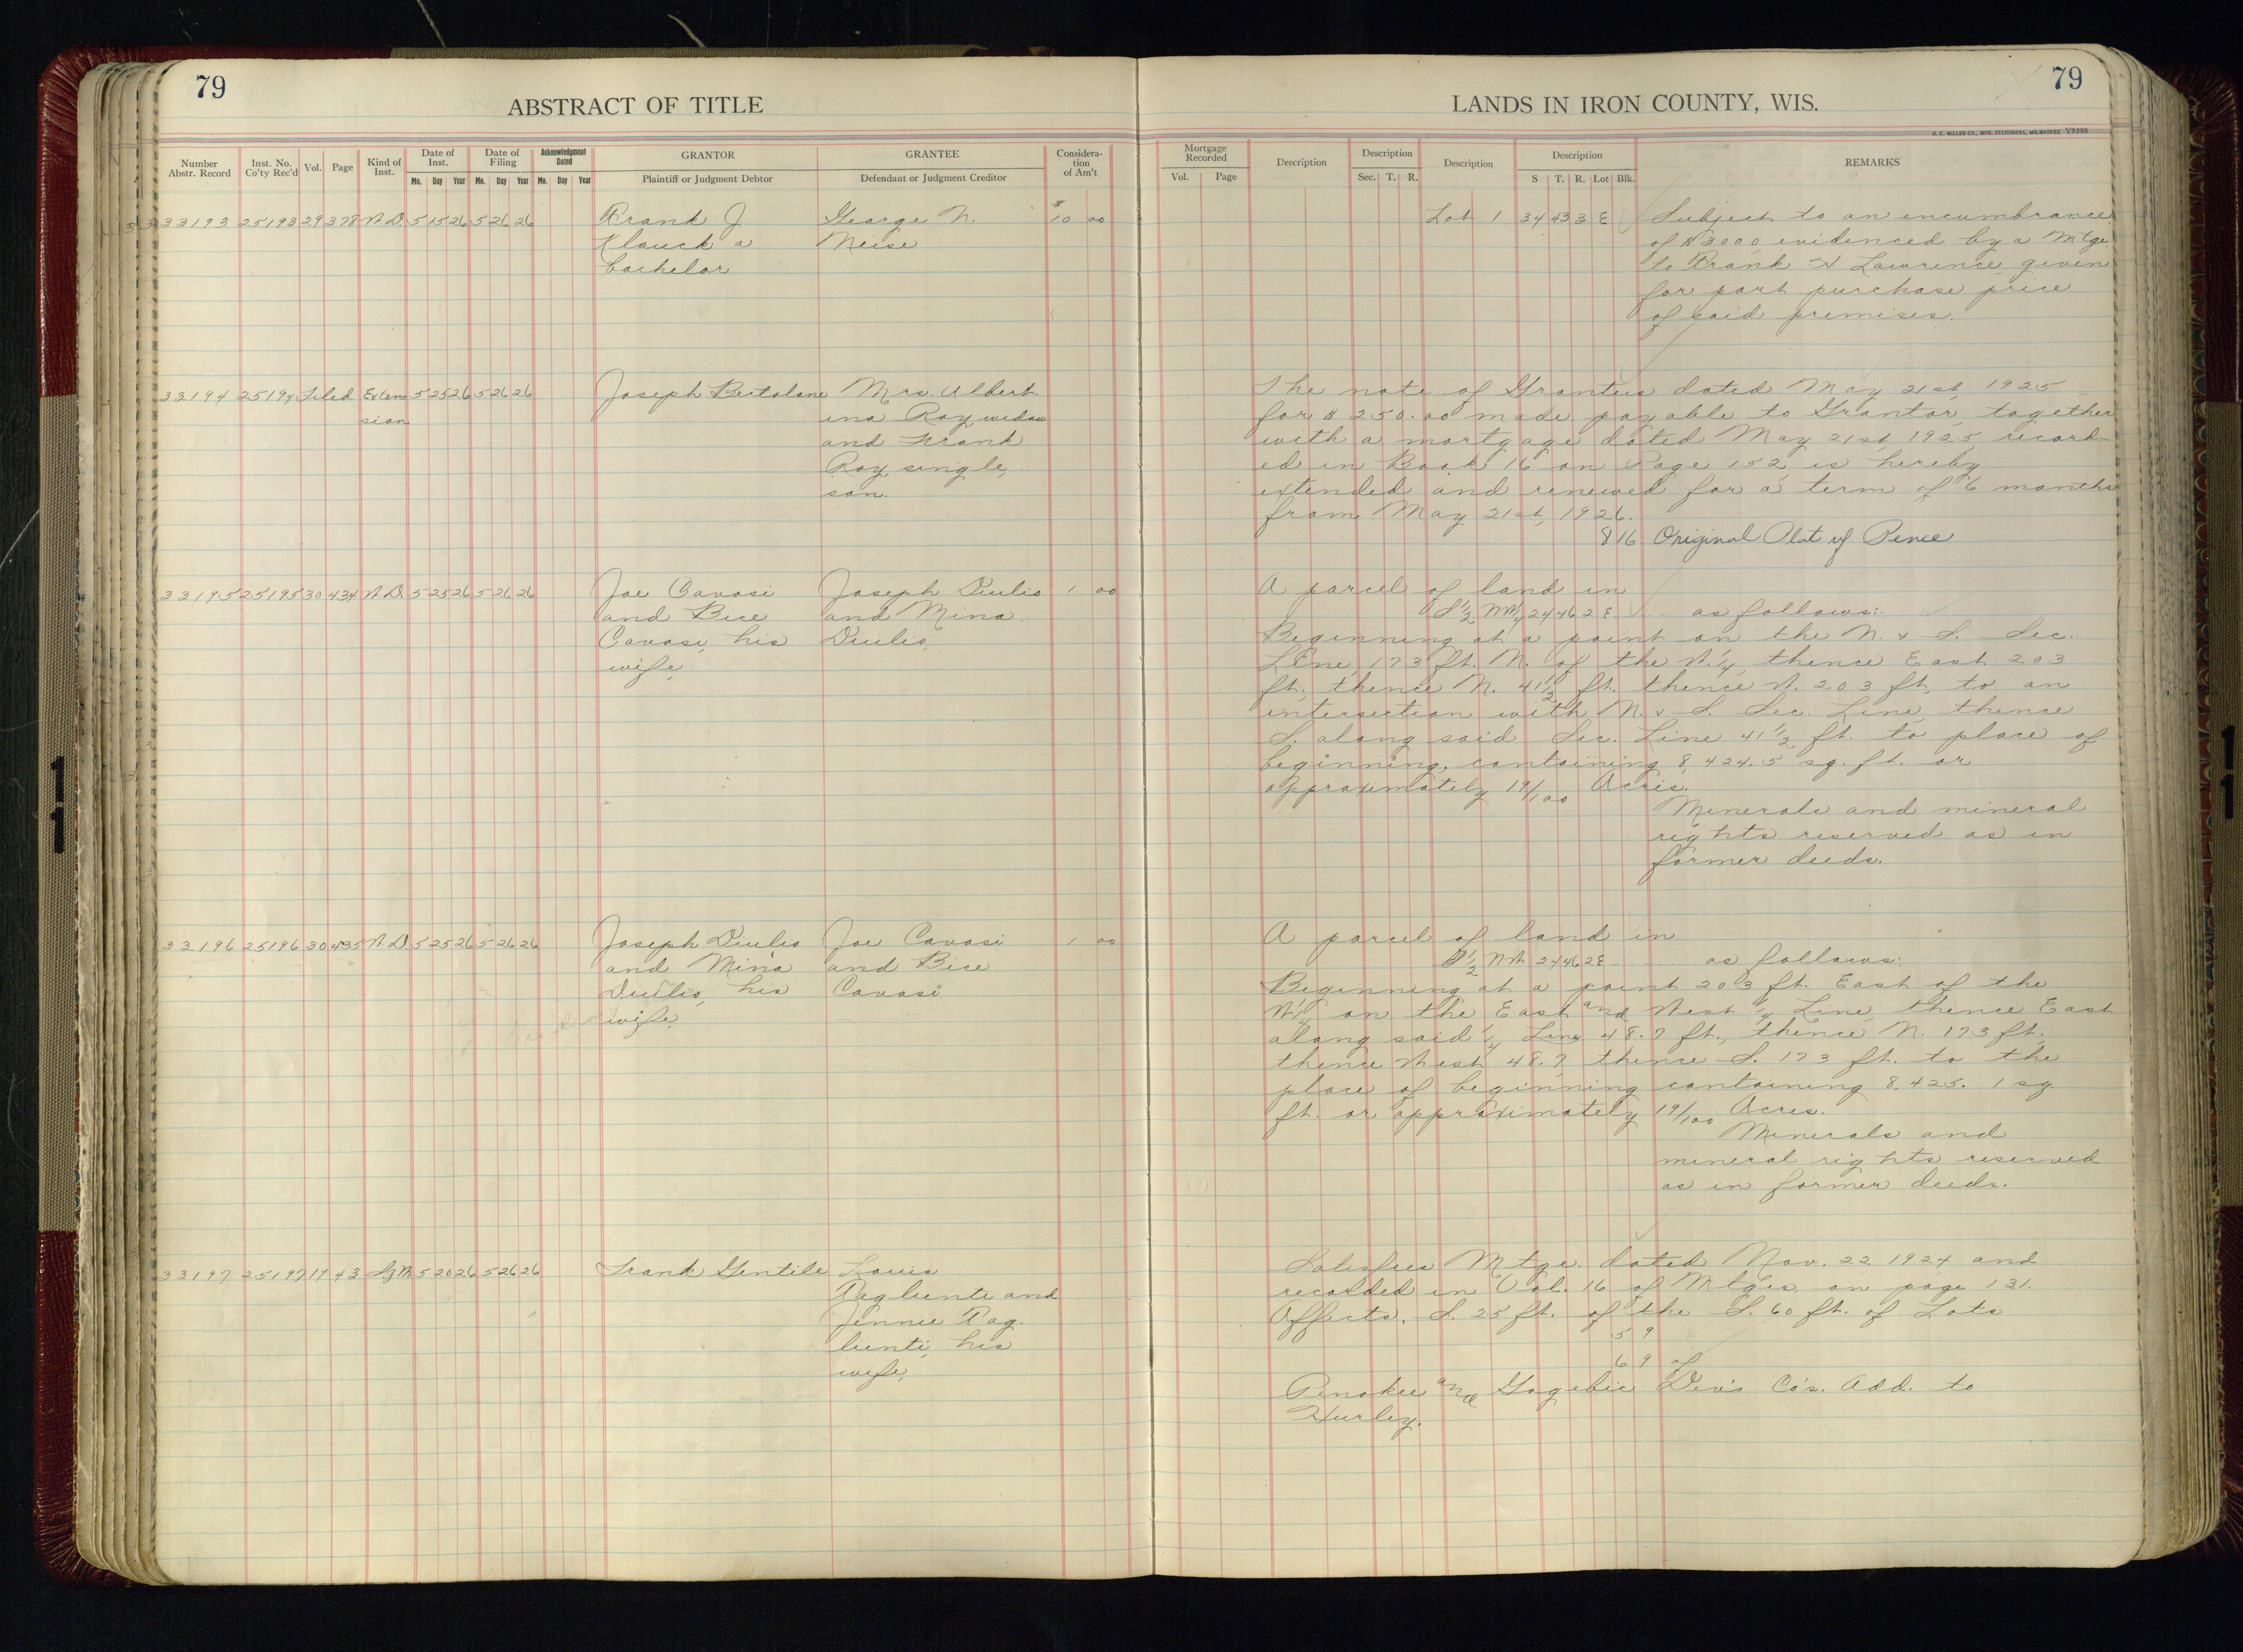 79
ABSTRACT OF TITLE
LANDS IN IRON COUNTY, WIS.
79
H. C. MILLER CO., MFG. STATIONERS, MILWAUKEE Y9398
Number Abstr. Record Inst. No. Co'ty Rec'd Vol. Page Kind of Inst. Date of Inst. Mo. Day Year Date of Filing Mo. Day Year Acknowledgment Dated Mo. Day Year GRANTOR Plaintiff or Judgment Debtor GRANTEE Defendant or Judgment Creditor Considera-tion of Am't
Mortgage Recorded Vol. Page Description Description Sec. T. R. Description Description S T. R. Lot Blk. REMARKS
33193 25193 29 378 W.D. 5 15 26 5 26 26 Frank J George N. $10 00
Klauck a Meise
bachelor
Lot 1 34 43 3 E Subject to an encumbrance
of $3000 evidenced by a Mtge
to Frank W Lawrence given
for part purchase price
of said premises.
33194 25194 Filed Exten 5 25 26 5 26 26 Joseph Bertolone Mrs. Albert
sion ina Roy, widow
and Frank
Roy, single,
son.
The note of Grantees dated May 21st, 1925
for $250.00 made payable to Grantor, together
with a mortgage dated May 21st, 1925, record-
ed in Book 16 on Page 152, is hereby
extended and renewed for a term of 6 months
from May 21st, 1926.
8 16 Original Plat of Pence
33195 25195 30 434 W.D. 5 25 26 5 26 26 Joe Cavosi Joseph Diulio 1 00
and Bice and Mina
Cavosi, his Diulio,
wife,
A parcel of land in
S½ NW¼ 24 46 2 E as follows:
Beginning at a point on the N. & S. Sec.
Line, 173 ft. N. of the W.¼, thence East 203
ft. thence N. 41½ ft. thence W. 203 ft, to an
intersection with N. & S. Sec. Line, thence
S. along said Sec. Line 41½ ft. to place of
beginning, containing 8,424.5 sq. ft. or
approximately 19/100 Acres.
Minerals and mineral
rights reserved as in
former deeds.
33196 25196 30 435 W.D. 5 25 26 5 26 26 Joseph Diulio Joe Cavosi 1 00
and Mina and Bice
Diulio, his Cavosi
wife,
A parcel of land in
S½ NW 24 46 2 E as follows:
Beginning at a point 203 ft. East of the
W¼ on the East and West ¼ Line, thence East
along said ¼ Line 48.7 ft., thence N. 173 ft.,
thence West 48.7, thence S. 173 ft. to the
place of beginning containing 8,425.1 sq
ft. or approximately 19/100 Acres.
Minerals and
mineral rights reserved
as in former deeds.
33197 25197 17 43 S of M 5 20 26 5 26 26 Frank Gentile Louis
Paglienti and
Jennie Pag-
lienti, his
wife,
Satisfies Mtge. dated Nov. 22 1924 and
recorded in Vol. 16 of Mtges. on page 131.
Affects. S. 25 ft. of the S. 60 ft. of Lots
5 9
6 9 of
Penokee and Gogebic Dev's Co's. Add. to
Hurley.